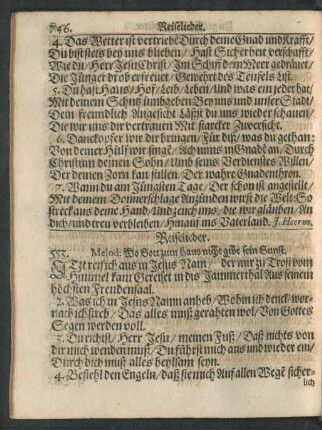 746. Reiselieder.
4. Das Wetter ist vertriebē Durch deine Gnad und Krafft/
Du bist stets bey uns blieben/ Hast Sicherheit verschafft/
Wie du/ Herr Jesu Christ/ Im Schif dem Meer gedräuet/
Die Jünger drob erfreuet/ Gewehrt des Teufels List.
5. Du hast Haus/ Hof/ Leib/ Leben/ Und was ein jeder hat/
Mit deinem Schutz umbgeben Bey uns und unser Stadt/
Dein freundlich Angesicht Läßst du uns wieder schauen/
Die wir uns dir vertrauen Mit starcker Zuversicht.
6. Danckopfer wir dir bringen/ Für diß/ was du gethan:
Von deiner Hülf wir singē/ Ach nim uns in Gnadē an/ Durch
Christum deinen Sohn/ Umb seins Verdienstes Willen/
Der deinen Zorn kan stillen/ Der wahre Gnadenthron.
7. Wann du am Jüngsten Tage/ Der schon ist angestellt/
Mit deinem Donnerschlage Anzünden wirst die Welt: So
streck aus deine Hand/ Und zeuch uns/ die wir gläuben/ An
dich/ und treu verbleiben/ Hinauf ins Vaterland. J. Heerm.
Reiselieder.
Melod: Wo Gott zum Haus nicht gibt sein Gunst.
JTzt reis ich aus in Jesus Nam/ der mir zu Trost vom
Himmel kam Gereiset in dis Jammerthal Aus seinem
höchsten Freudensaal.
2. Was ich in Jesus Namn anheb/ Wohin ich denck wor-
nach ich streb/ Das alles muß gerahten wol/ Von Gottes
Segen werden voll.
3. Du richtst/ Herr Jesu/ meinen Fuß/ Daß nichts von
dir mich wenden muß/ Du führst mich aus und wieder ein/
Durch dich muß alles heylsam seyn.
4. Befiehl den Engeln/ daß sie mich Auf allen Wegē sicher-
lich